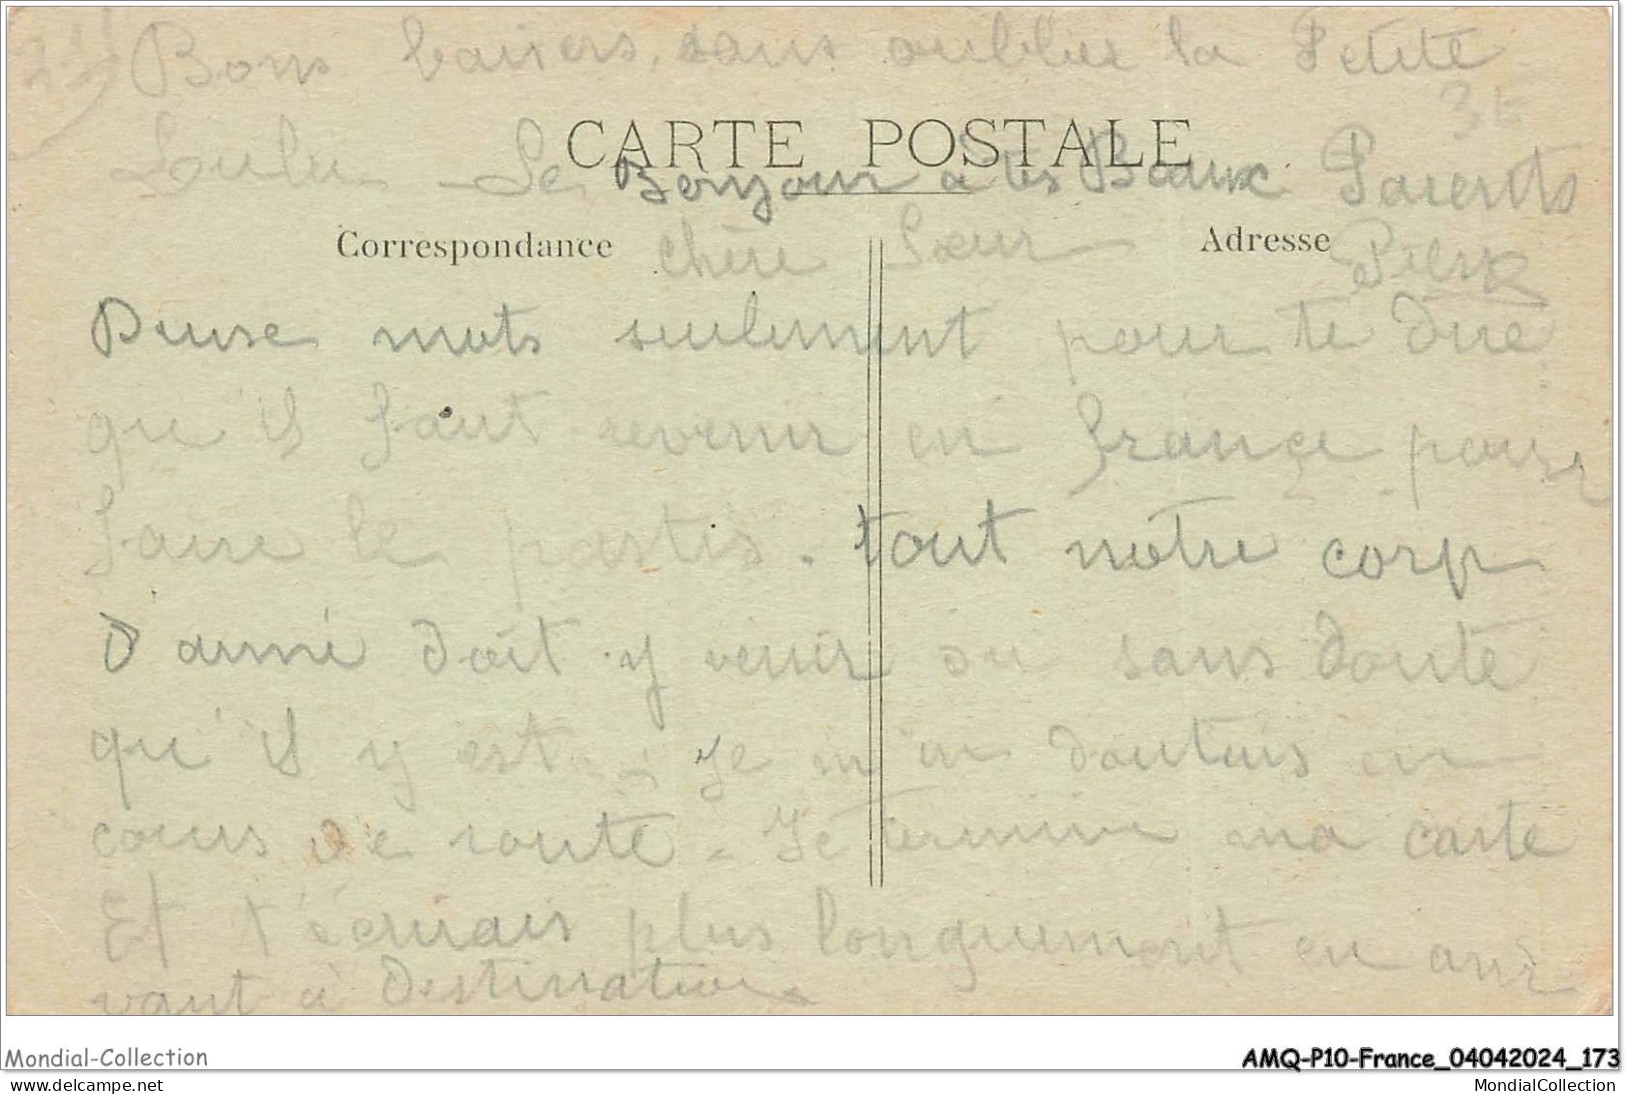 Bons baisers, sans oublier la Petite
Lulu Le Bonjour à tes Beaux Parents
CARTE POSTALE
Correspondance
Adresse
chère Sœur
Deuse mots seulement pour te dire
qu'il faut revenir en France pour
faire le partis. tout notre corp
d'armé doit y venir ou sans doute
qu'il y est. Je m'en doutais en
cours de route. Je termine ma carte
Et t'écrirais plus longuement en arri
vant à Destination.
Mondial-Collection
AMQ-P10-France_04042024_173
www.delcampe.net
MondialCollection